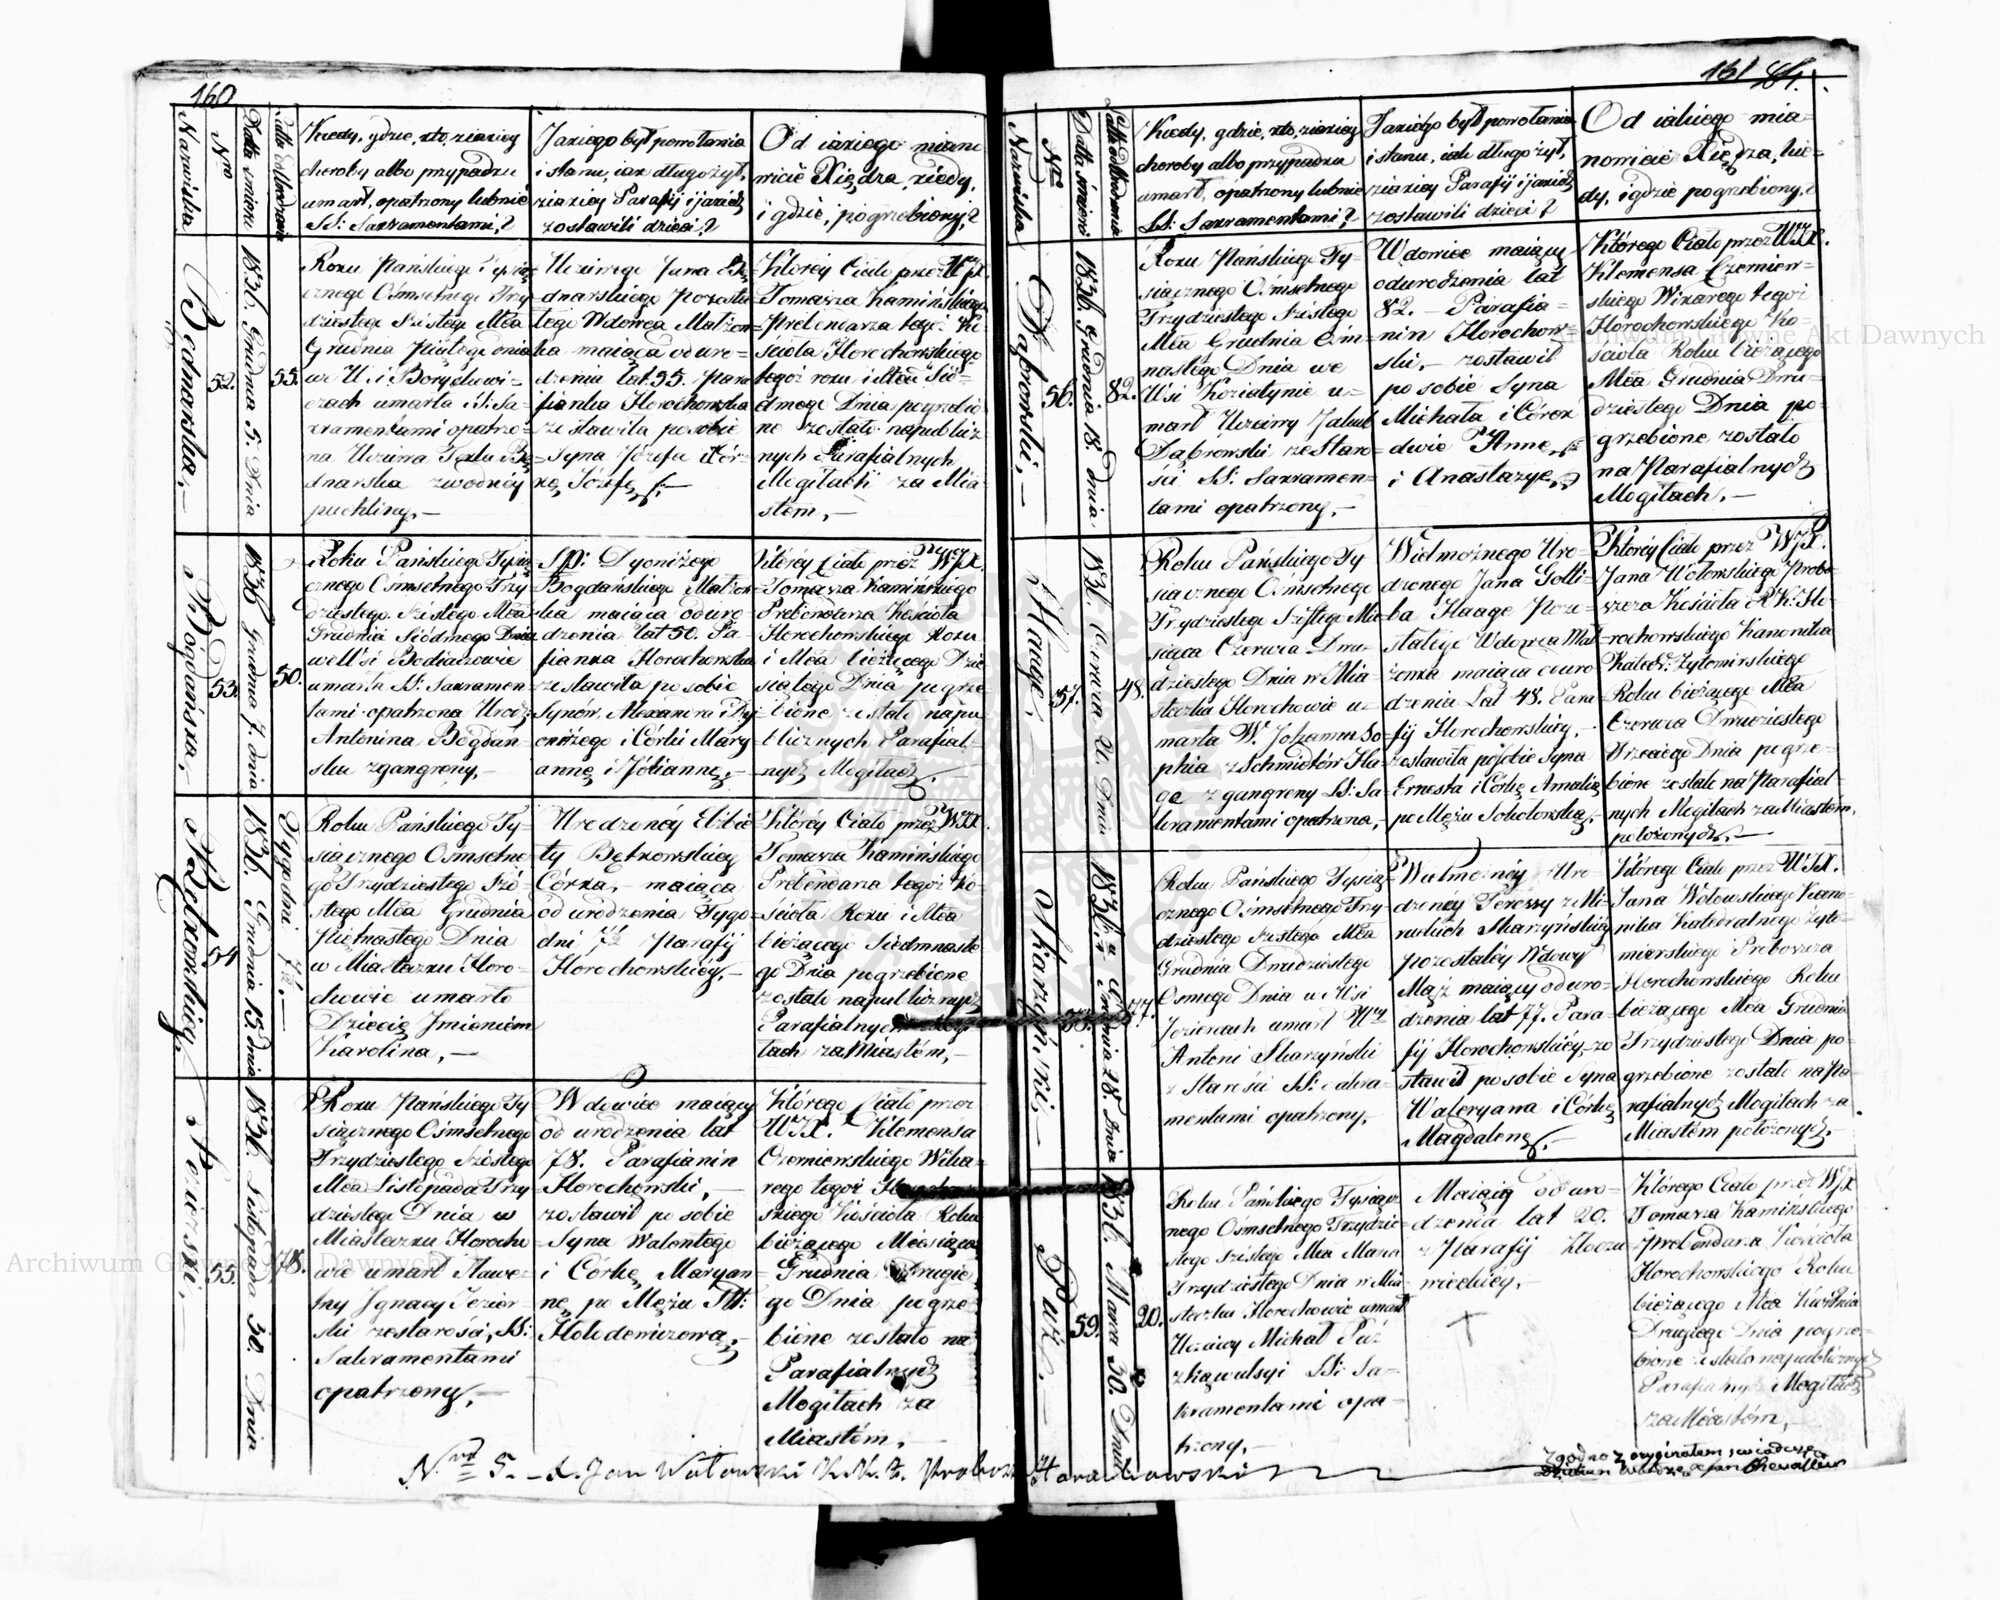 160
Nazwiska
Nro
Datta śmierci
Latta od Urodzenia
Kiedy, gdzie, kto, ziakiey
choroby albo przypadku
umarł, opatrzony lub nie
SS: Sakramentami,?
Jakiego był powołania
i stanu, iak długo żył,
ziakiey Parafij i jakich
zostawili dzieci?
Od iakiego miano
wicie Xiędza, kiedy,
i gdzie, pogrzebiony,?
Bednarska,—
52.
1836. Grudnia 5. Dnia
55.
Roku Pańskiego Tysią=
cznego Ośmsetnego Trzy
dziestego Szóstego Mca
Grudnia Piątego dnia
we Wsi Borysławi=
czach umarła SS: Sa=
kramentami opatrzo=
na Uczciwa Tekla Be=
dnarska zwodney
puchliny,—
Uczciwego Jana Be=
dnarskiego Pozosta
łego Wdowca Małżon=
ka maiąca od uro=
dzenia lat 55. Para
fianka Horochowska
zostawiła po sobie
Syna Józefa i Cór=
kę Józefę,—
Którey Ciało przez WJX.
Tomasza Kamińskiego
Prebendarza tegoż Ko
ścioła Horochowskiego
tegoż roku i Mca Sió=
dmego Dnia pogrzebio
ne zostało napublicz=
nych Parafialnych
Mogiłach za Mia=
stem,—
Bogdańska,—
53.
1836 Grudnia 7. dnia
50.
Roku Pańskiego Tysią
cznego Ośmsetnego Trzy
dziestego Szóstego Mca
Grudnia Siódmego Dnia
we Wsi Bodiaczowie
umarła SS: Sakramen
tami opatrzona Urodz:
Antonina Bogdań=
ska zgangreny,—
Sp: Dyonizego
Bogdańskiego Małżon
ka maiąca od uro
dzenia lat 50. Pa
fianka Horochowska
zostawiła po sobie
Synów Alexandra i Dy
onizego i Córki Mary
annę i Juliannę,—
Którey Ciało przez WJX.
Tomasza Kamińskiego
Prebendarza Kościoła
Horochowskiego Roku
i Mca bieżącego Dzie
siątego Dnia pogrze
bione zostało napu
blicznych Parafial=
nych Mogiłach,—
Bętkowskiey,
54
1836. Grudnia 15. dnia
Tygodni 7½.—
Roku Pańskiego Ty=
siącznego Ośmsetne
go Trzydziestego Szó=
stego Mca Grudnia
Piętnastego Dnia
w Miastczku Horo=
chowie umarło
Dziecię Jmieniem
Karolina,—
Urodzoney Elżbie
ty Bętkowskiey
Córka,— maiąca
od urodzenia Tygo
dni 7½ Parafij
Horochowskiey,—
Którey Ciało przez WJX.
Tomasza Kamińskiego
Prebendarza tegoż Ko=
ścioła Roku i Mca
bieżącego Siedmnaste
go Dnia pogrzebione
zostało napublicznych
Parafialnych Mogi
łach za Miastem,—
Jezierski,
55.
1836. Listopada 30. Dnia
78.
Roku Pańskiego Ty=
siącznego Ośmsetnego
Trzydziestego Szóstego
Mca Listopada Trzy
dziestego Dnia w
Miasteczku Horocho
wie umarł Sławe=
tny Jgnacy Jezier=
ski ze starości, SS:
Sakramentami
opatrzony,—
Wdowiec maiący
od urodzenia lat
78. Parafianin
Horochowski,—
zostawił po sobie
Syna Walentego
i Córkę Maryan=
nę po Mężu
Hołodewiczowa,—
Którego Ciało przez
WJX. Klemensa
Czerniewskiego Wika=
rego tegoż Horochow
skiego Kościoła Roku
bieżącego Miesiąca
Grudnia Drugie
go Dnia pogrze=
bione zostało na
Parafialnych
Mogiłach za
Miastem,—
161
Nazwiska
Nro
Datta śmierci
Latta od Urodzenia
Kiedy, gdzie, kto, ziakiey
choroby albo przypadku
umarł, opatrzony lub nie
SS: Sakramentami,?
Jakiego był powołania
i stanu, iak długo żył,
ziakiey Parafij i jakich
zostawili dzieci?
Od iakiego mia=
nowicie Xiędza, kie=
dy, i gdzie pogrzebiony,?
Dąbrowski,—
56.
1836. Grudnia 18. dnia
82.
Roku Pańskiego Ty=
siącznego Ośmsetnego
Trzydziestego Szóstego
Mca Grudnia Ośm=
nastego Dnia we
Wsi Koziatynie u=
marł Uczciwy Jakub
Dąbrowski ze Staro=
ści SS: Sakramen=
tami opatrzony,—
Wdowiec maiący
od urodzenia lat
82.— Parafia=
nin Horochow=
ski,— zostawił
po sobie Syna
Michała i Córek
dwie Annę,
i Anastazyę,
Którego Ciało przez WJX.
Klemensa Czerniew=
skiego Wikarego tegoż
Horochowskiego Ko=
ścioła Roku bieżącego
Mca Grudnia Dwu=
dziestego Dnia po=
grzebione zostało
na Parafialnych
Mogiłach,—
Haage,
57.
1836. Czerwca 20. Dnia
48.
Roku Pańskiego Ty
siącznego Ośmsetnego
Trzydziestego Szóstego Mie
siąca Czerwca Dwu=
dziestego Dnia w Mia=
steczku Horochowie u=
marła W. Johanna So=
phia z Schmidtów Ha
age z gangreny SS: Sa=
kramentami opatrzona,—
Wielmożnego Uro=
dzonego Jana Gotli=
ba Haage Pozo=
stałego Wdowca Mał
żonka maiąca od uro
dzenia Lat 48. Para
fij Horochowskiey,—
zostawiła po sobie Syna
Ernesta i Córkę Amalią
po Mężu Sokołowską,—
Którey Ciało przez WJX.
Jana Wołowskiego Probo=
szcza Kościoła R.K. Ho=
rochowskiego Kanonika
Katedr. Żytomirskiego
Roku bieżącego Mca
Czerwca Dwudziestego
Trzeciego Dnia pogrze=
bione zostało na Parafial=
nych Mogiłach za Miastem,
położonych,—
Skarzyński,—
58.
1836. Grudnia 28. Dnia
77.
Roku Pańskiego Tysią=
cznego Ośmsetnego Trzy
dziestego Szóstego Mca
Grudnia Dwudziestego
Osmego Dnia we Wsi
Jeziercach umarł Ur:
Antoni Skarzyński
z Starości SS: Sakra=
mentami opatrzony,
Wielmożney Uro=
dzoney Teressy z Mi=
rulich Skarzyńskiey
pozostałey Wdowy
Mąż maiący od uro=
dzenia lat 77. Para=
fij Horochowskiey, zo
stawił po sobie Syna
Waleryana i Córkę
Magdalenę,—
Którego Ciało przez WJX.
Jana Wołowskiego Kano=
nika Katedralnego Żyto=
mierskiego Proboszcza
Horochowskiego Roku
bieżącego Mca Grudnia
Trzydziestego Dnia po=
grzebione zostało na Pa
rafialnych Mogiłach za
Miastem położonych,—
Puź,—
59.
1836. Marca 30. Dnia
20.
Roku Pańskiego Tysiącz
nego Ośmsetnego Trzydzie=
stego Szóstego Mca Marca
Trzydziestego Dnia w Mia=
steczku Horochowie umarł
Uczciwy Michał Puź
z kąwulsyi SS: Sa=
kramentami opa=
trzony,—
Maiący od uro=
dzenia lat 20.
z Parafij
wieckiey,—
Którego Ciało przez WJX
Tomasza Kamińskiego
Prebendarza Kościoła
Horochowskiego Roku
bieżącego Mca Kwietnia
Drugiego Dnia pogrze=
bione zostało napublicznych
Parafialnych Mogiłach
za Miastem,—
Nro 5. X. Jan Wołowski K.K.Ż. Proboszcz Horochowski
Zgodno z oryginałem świadczę
Archiwum Główne Akt Dawnych
Archiwum Główne Akt Dawnych